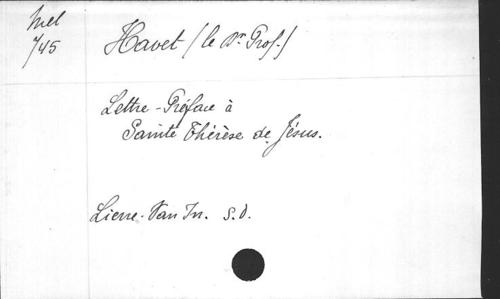 Mel
745
Havet / (le Dr Prof.)
Lettre-Préface à
Sainte Thérèse de Jésus.
Lierre - Van In. s.d.